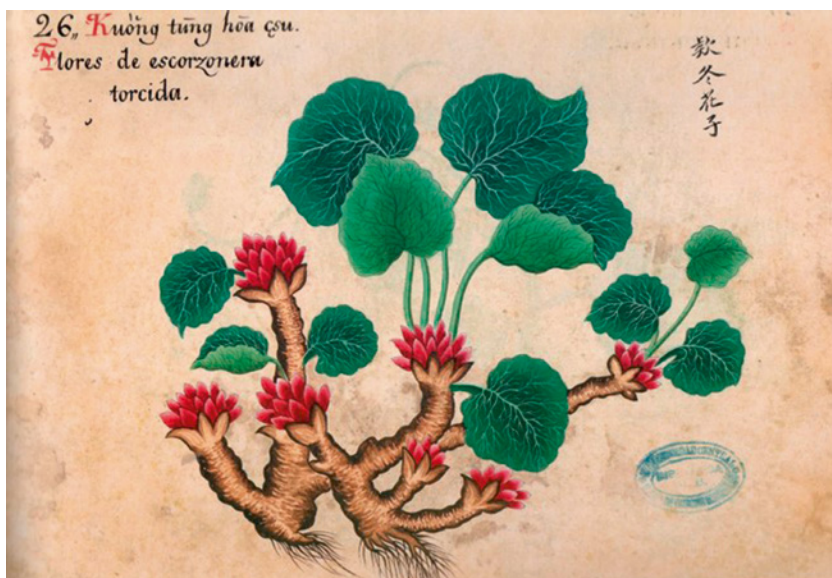 26,, Kuỏ̃ng tūng hōa çsu.
Flores de escorzonera
torcida.
款冬花子